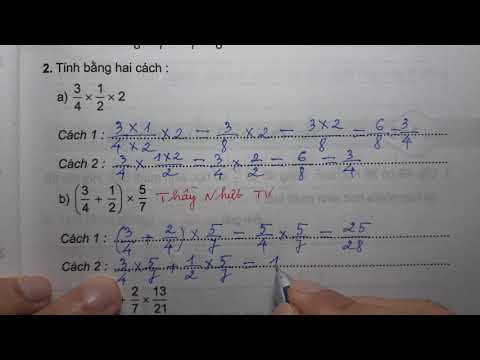 2. Tính bằng hai cách :
a) 3/4 × 1/2 × 2
Cách 1 : (3 × 1)/(4 × 2) × 2 = 3/8 × 2 = (3 × 2)/8 = 6/8 = 3/4
Cách 2 : 3/4 × (1×2)/2 = 3/4 × 2/2 = 6/8 = 3/4
b) (3/4 + 1/2) × 5/7 Thầy Nhựt TV
Cách 1 : (3/4 + 2/4) × 5/7 = 5/4 × 5/7 = 25/28
Cách 2 : 3/4 × 5/7 + 1/2 × 5/7 = 1
+ 2/7 × 13/21